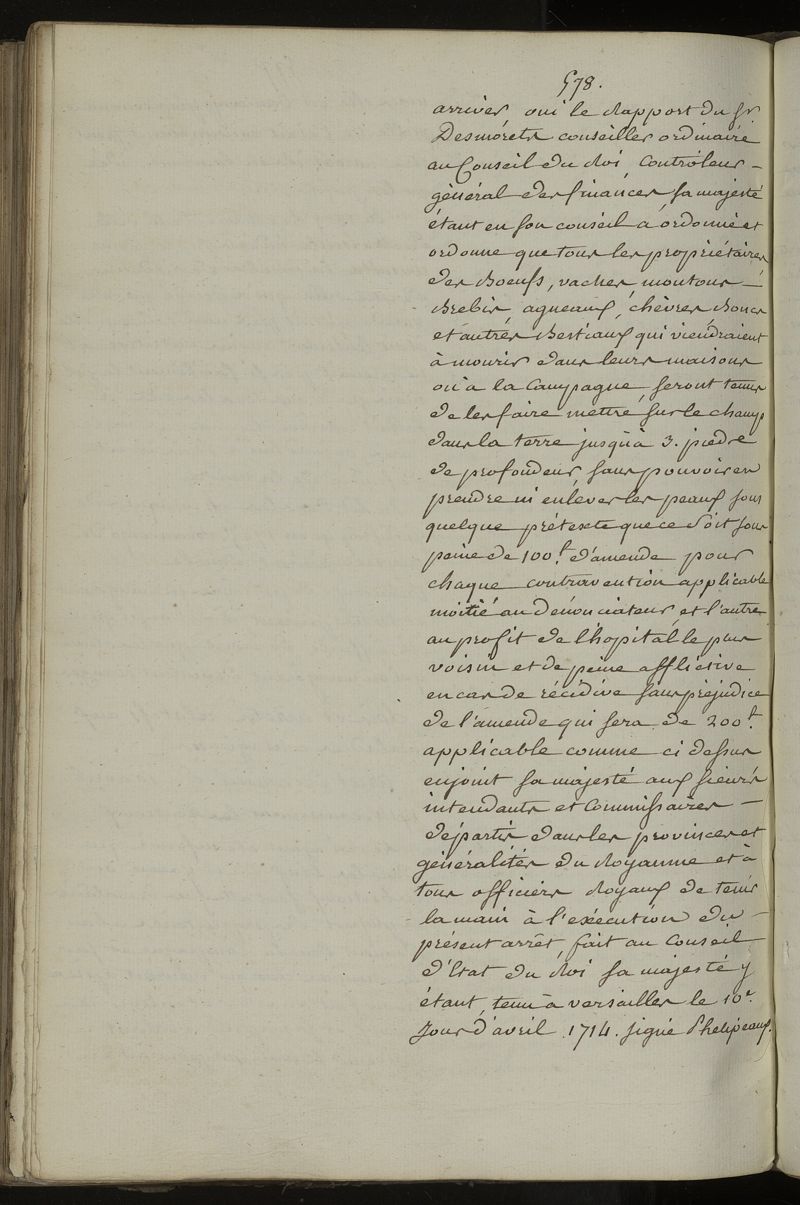 578.
arriver oui le Rapport du Sr.
Desmoréts conseiller ordinaire
au Conseil du Roi, Contrôleur —
général des finances, sa majesté
étant en son conseil a ordonné et
ordonne que tous les propriétaires
des Boeufs, vaches, moutons —
Brebis, agneaux, chèvres, Boucs
et autres Bestiaux qui viendraient
à mourir dans leurs maisons
ou à la Campagne, seront tenus
de les faire mettre sur le champ
dans la terre jusqu'à 3. pieds
de profondeur, sans pouvoir en
prendre ni enlever les peaux sous
quelque prétexte que ce soit sous
peine de 100 ₶ d'amende pour
chaque contravention applicable
moitié au Dénonciateur, et l'autre
au profit de l'hopital le plus
voisin et de peine afflictive
en cas de récidive sans préjudice
de l'amende qui sera de 200 ₶
applicable comme ci dessus
enjoint sa majesté aux sieurs
intendants et Commissaires —
départis dans les provinces et
généralités du Royaume et à
tous officiers Royaux de tenir
la main à l'exécution du —
présent arrêt, fait au Conseil
d'Etat du Roi sa majesté y
étant, tenu à versailles le 10e.
Jour d'avril 1714. signé Phelipeaux.